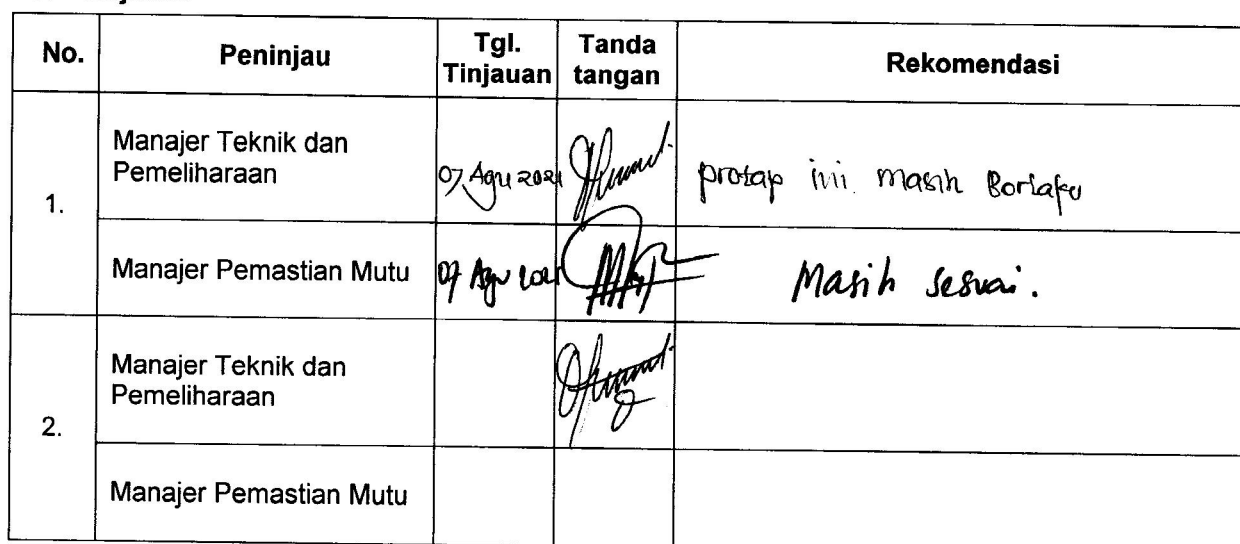 No. Peninjau Tgl. Tinjauan Tanda tangan Rekomendasi
1.
Manajer Teknik dan
Pemeliharaan
07 Agu 2021
protap ini masih Berlaku
Manajer Pemastian Mutu
07 Agu 2021
Masih sesuai.
2.
Manajer Teknik dan
Pemeliharaan
Manajer Pemastian Mutu